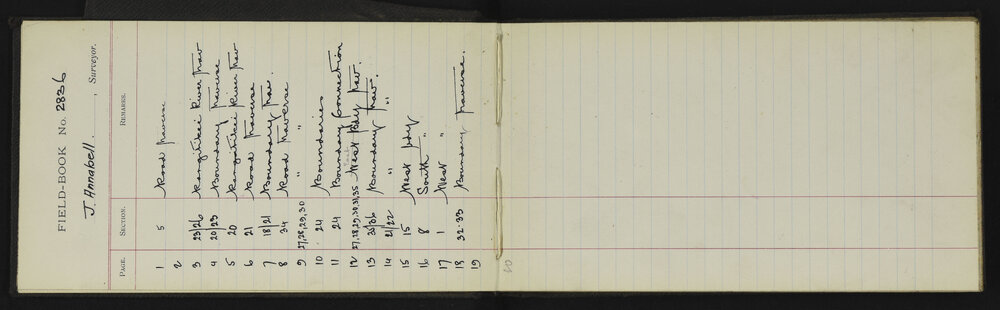 FIELD-BOOK No. 2836
J. Annabell, Surveyor.
PAGE. SECTION. REMARKS.
1 5 Road traverse
2
3 23/26 Rangitikei River trav
4 20/23 Boundary traverse
5 20 Rangitikei River trav
6 21 Road traverse
7 18/21 Boundary trav.
8 34 Road traverse
9 27,28,29,30 "
10 24 Boundaries
11 24 Boundary connection
12 27,28,29,30,31,35 West bdy trav.
13 35/36 Boundary trav.
14 21/22 " "
15 15 West bdy
16 8 South "
17 1 West "
18 32.33 Boundary traverse.
19